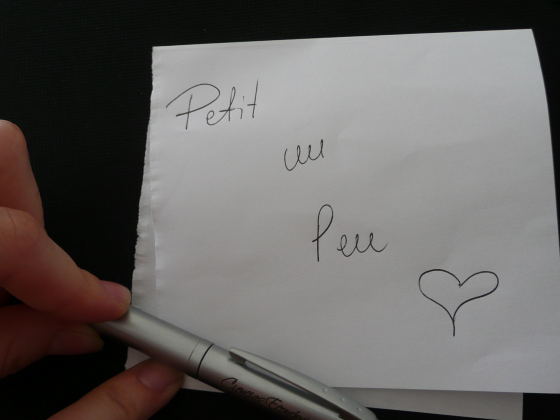 Petit
un
Peu